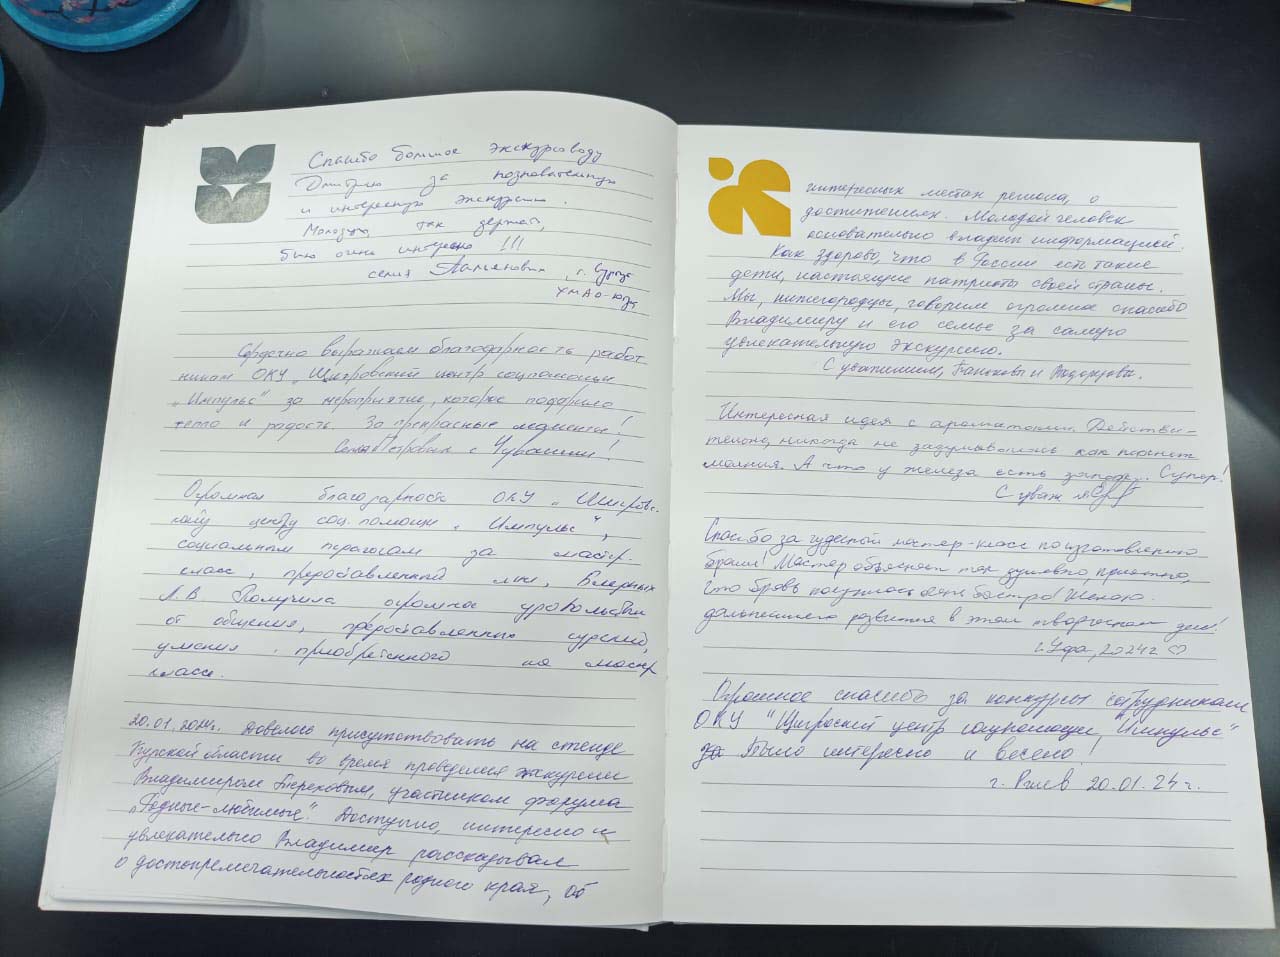 Спасибо большое экскурсоводу
Дмитрию за познавательную
и интересную экскурсию.
Молодцы, так держать,
было очень интересно!!!
семья г. Сургут
ХМАО-Югра
Сердечно выражаем благодарность работ
никам ОКУ „Щигровский центр соцпомощи
„Импульс" за мероприятие, которое подарило
тепло и радость. За прекрасные моменты!
Семья Петровых с Чувашии!
Огромная благодарность ОКУ „Щигровс.
кому центру соц. помощи „Импульс",
социальным педагогам за мастер-
класс, предоставленный мне,
Л.В. Получила огромное удовольствие
от общения, предоставленных
умения, приобретенного на мастер
классе.
20.01.2024г. Довелось присутствовать на стенде
Курской области во время проведения экскурсии
Владимиром Тереховым, участником форума
„Родные-любимые". Доступно, интересно и
увлекательно Владимир рассказывал
о достопримечательностях родного края, об
интересных местах региона, о
достижениях. Молодой человек
основательно владеет информацией.
Как здорово, что в России есть такие
дети, настоящие патриоты своей страны.
Мы, нижегородцы, говорим огромное спасибо
Владимиру и его семье за самую
увлекательную экскурсию.
С уважением, и
Интересная идея с ароматами. Действи-
тельно, никогда не задумывалась как пахнет
молния. А что у железа есть запах... Супер!
С уваж
Спасибо за чудесный мастер-класс по изготовлению
броши! Мастер объясняет так душевно, приятно,
что брошь получилась очень быстро! Желаю
дальнейшего развития в этом творческом деле!
г. Уфа, 2024г ♡
Огромное спасибо за конкурсы сотрудникам
ОКУ "Щигровский центр соцпомощи "Импульс"
за Было интересно и весело!
г. Ржев 20.01.24г.